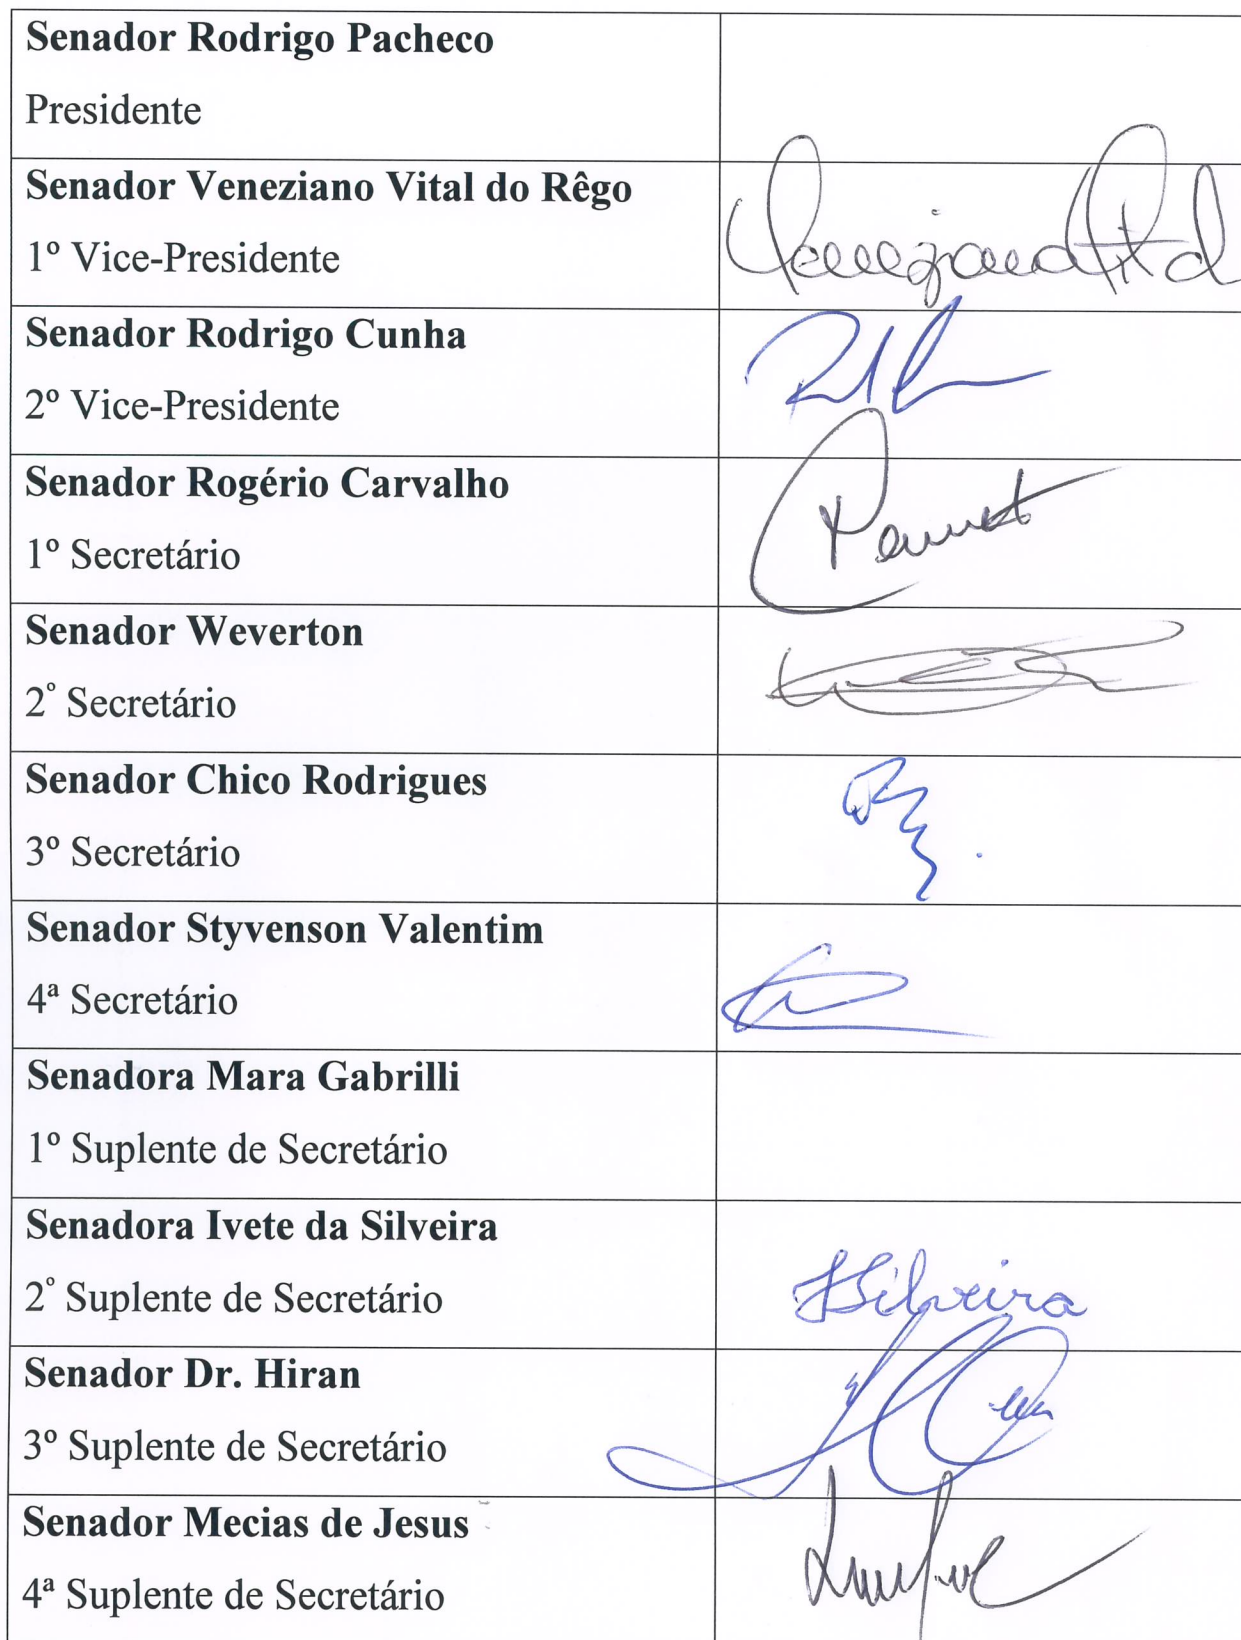 Senador Rodrigo Pacheco
Presidente
Senador Veneziano Vital do Rêgo
1º Vice-Presidente
Veneziano Vital d
Senador Rodrigo Cunha
2º Vice-Presidente
Senador Rogério Carvalho
1º Secretário
Senador Weverton
2º Secretário
Senador Chico Rodrigues
3º Secretário
Senador Styvenson Valentim
4ª Secretário
Senadora Mara Gabrilli
1º Suplente de Secretário
Senadora Ivete da Silveira
2º Suplente de Secretário
Silveira
Senador Dr. Hiran
3º Suplente de Secretário
Senador Mecias de Jesus
4ª Suplente de Secretário